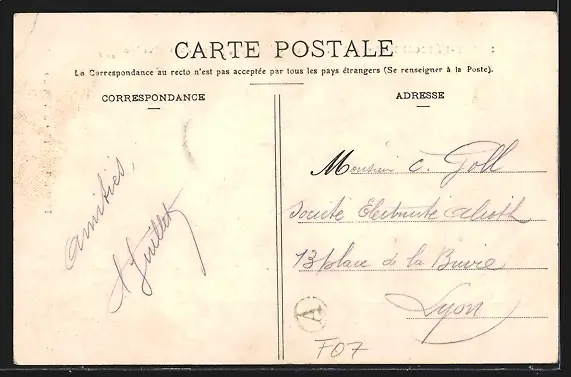 CARTE POSTALE
La Correspondance au recto n'est pas acceptée par tous les pays étrangers (Se renseigner à la Poste).
CORRESPONDANCE
Amitiés,
A Juillet
ADRESSE
Monsieur C. Goll
Société Electricité Alioth
13 place de la Buire
Lyon
A
F07